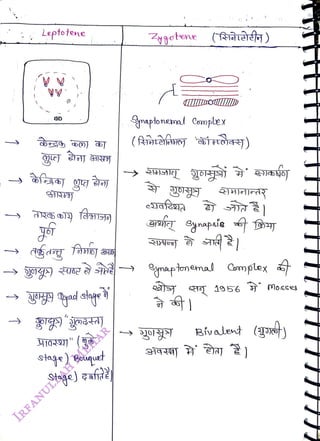 Leptotene
BD
→ केन्द्रक कला का
लुप्त होना प्रारम्भ
→ केन्द्रिका लुप्त होना
प्रारम्भ
→ तारककाय विभाजन
पूर्ण
→ तर्कुतन्तु निर्माण प्रारम्भ
→ गुणसूत्र स्पष्ट हो जाते है
→ गुणसूत्र Dyad stage में
→ गुणसूत्र "गुलदस्ता
प्रावस्था" (बुके
stage) Bouquet
stage) दर्शाते है
Zygotene (जिगोटीन)
Synaptonemal Complex
(सिनेप्टोनिमल कॉम्पलैक्स)
→ समजात गुणसूत्रों में आकर्षण
से गुणसूत्र समानान्तर
व्यवस्थित हो जाते है |
अर्थात् Synapsis की क्रिया
सम्पन्न हो जाती है |
→ Synaptonemal Complex की
खोज सन् 1956 में Moses
ने की |
→ गुणसूत्र Bivalent (युगली)
अवस्था में होता है |